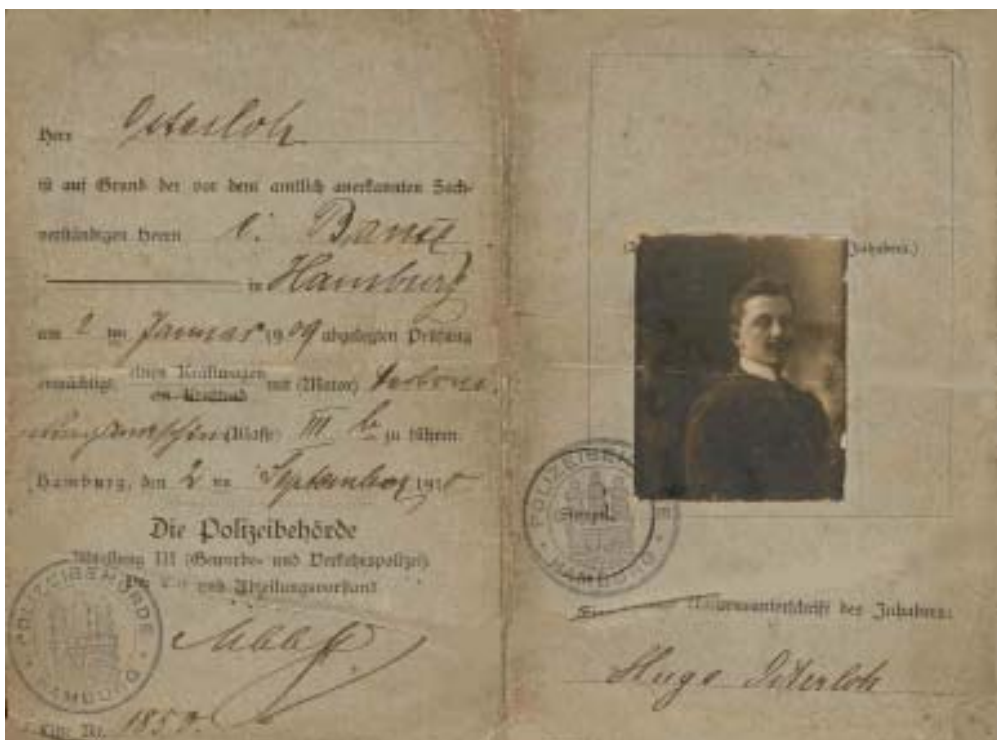 Herr Osterloh
ist auf Grund der vor dem amtlich anerkannten Sach-
verständigen Herrn C. Banse
in Hamburg
am 2 ten Januar 1909 abgelegten Prüfung
ermächtigt, einen Kraftwagen
ein Kraftrad
mit (Motor)
(Klasse) III b zu führen
Hamburg, den 2 ten September 1910
Die Polizeibehörde
Abteilung III (Gewerbe- und Verkehrspolizei)
und Abteilungsvorstand
POLIZEIBEHÖRDE
HAMBURG
Liste Nr. 1850.
Inhabers.)
POLIZEIBEHÖRDE
HAMBURG
Stempel
Namensunterschrift des Inhabers:
Hugo Osterloh